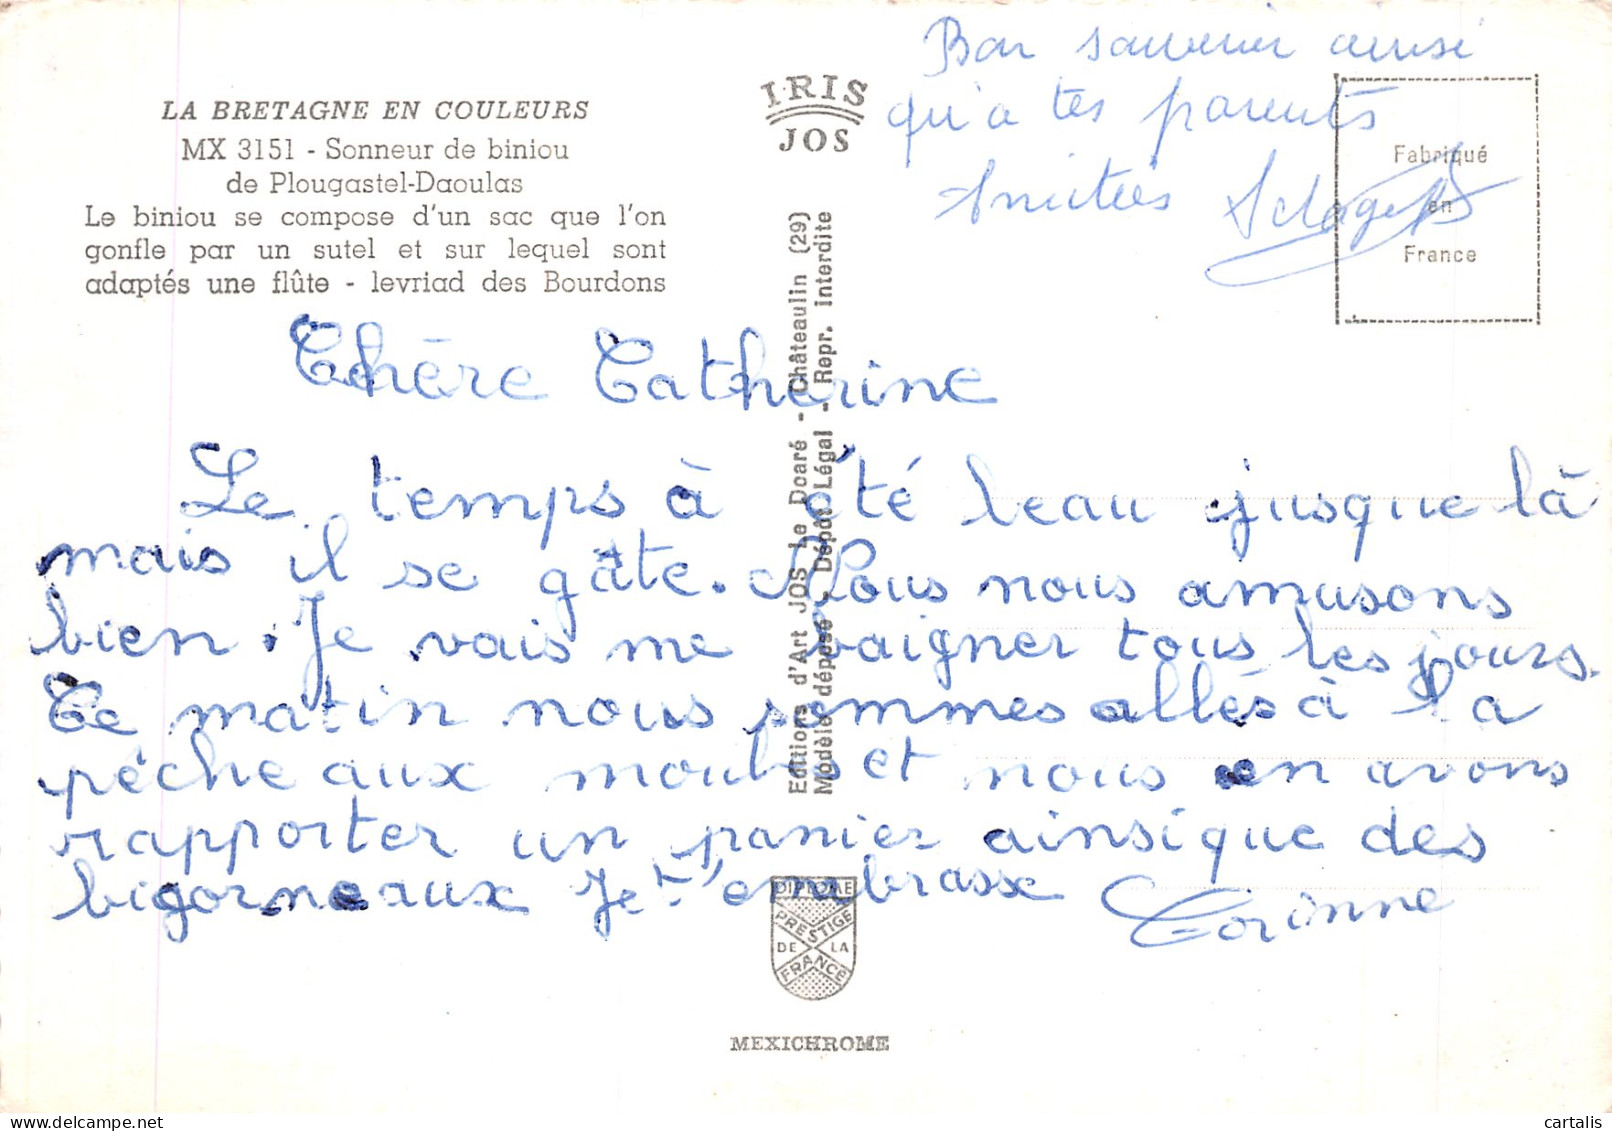 LA BRETAGNE EN COULEURS
MX 3151 - Sonneur de biniou
de Plougastel-Daoulas
Le biniou se compose d'un sac que l'on
gonfle par un sutel et sur lequel sont
adaptés une flûte - levriad des Bourdons
IRIS
JOS
Bon souvenir ainsi
qu'a tes parents
Amitiés
Fabriqué
en
France
Editions d'Art JOS Le Doaré - Châteaulin (29)
Modèle déposé - Dépôt Légal - Repr. interdite
Chère Catherine
Le temps à été beau jusque là
mais il se gâte. Nous nous amusons
bien. Je vais me baigner tous les jours.
Ce matin nous sommes allés à la
pêche aux moules et nous en avons
rapporter un panier ainsique des
bigorneaux Je t'embrasse Corinne
DIPLOME
PRESTIGE
DE LA
FRANCE
MEXICHROME
cartalis